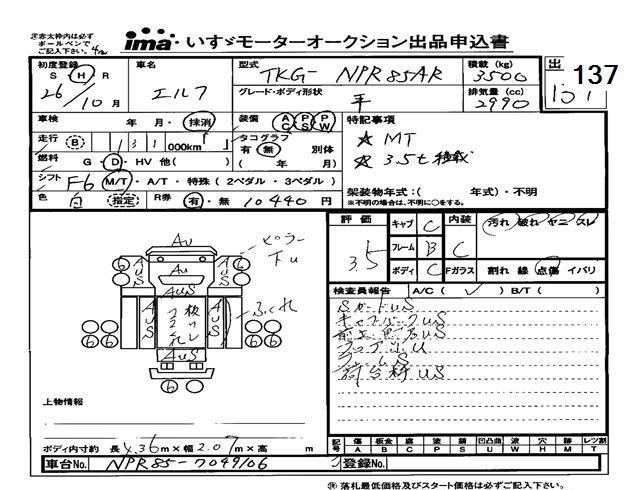 ㊟赤太枠内は必ず
ボールペンで
ご記入下さい。
ima・いすゞモーターオークション出品申込書
初度登録 S H R
26年 10月
車名
エルフ
型式 TKG- NPR85AR
グレード・ボディ形状
平
積載 (kg)
3500
排気量 (cc)
2990
出
137
車検 年 月・抹消
装備 AC PS PW
特記事項
走行 B 131 000km
タコグラフ
有 無 別体
( 年 月)
★ MT
★ 3.5t積載
燃料 G・D・HV 他( )
シフト F6 M/T・A/T・特殊(2ペダル・3ペダル)
架装物年式:( 年式)・不明
※不明の場合は、不明に○をする。
色 白 指定 R券 有・無 10440 円
評価
3.5
キャブ C
フレーム B
ボディ C
内装 C
汚れ・破れ・ヤニ・スレ
Fガラス 割れ・線・点傷・イバリ
検査員報告 A/C( ✓ ) B/T( )
SガードUS
キャブバックUS
フロア小U
荷台枠US
Au
ピラー
下u
Au
AUS
AUS
AUS
AUS
AUS
AUS
6
上物情報
ボディ内寸約 長 4.36m×幅 2.07m×高 m
記号 傷 板金 腐 塗 錆 凹凸曲 波 穴 跡 レンズ割
A B C P S U W H M T
車台No. NPR85-7049106
登録No.
㊟落札最低価格及びスタート価格は必ずご記入下さい。